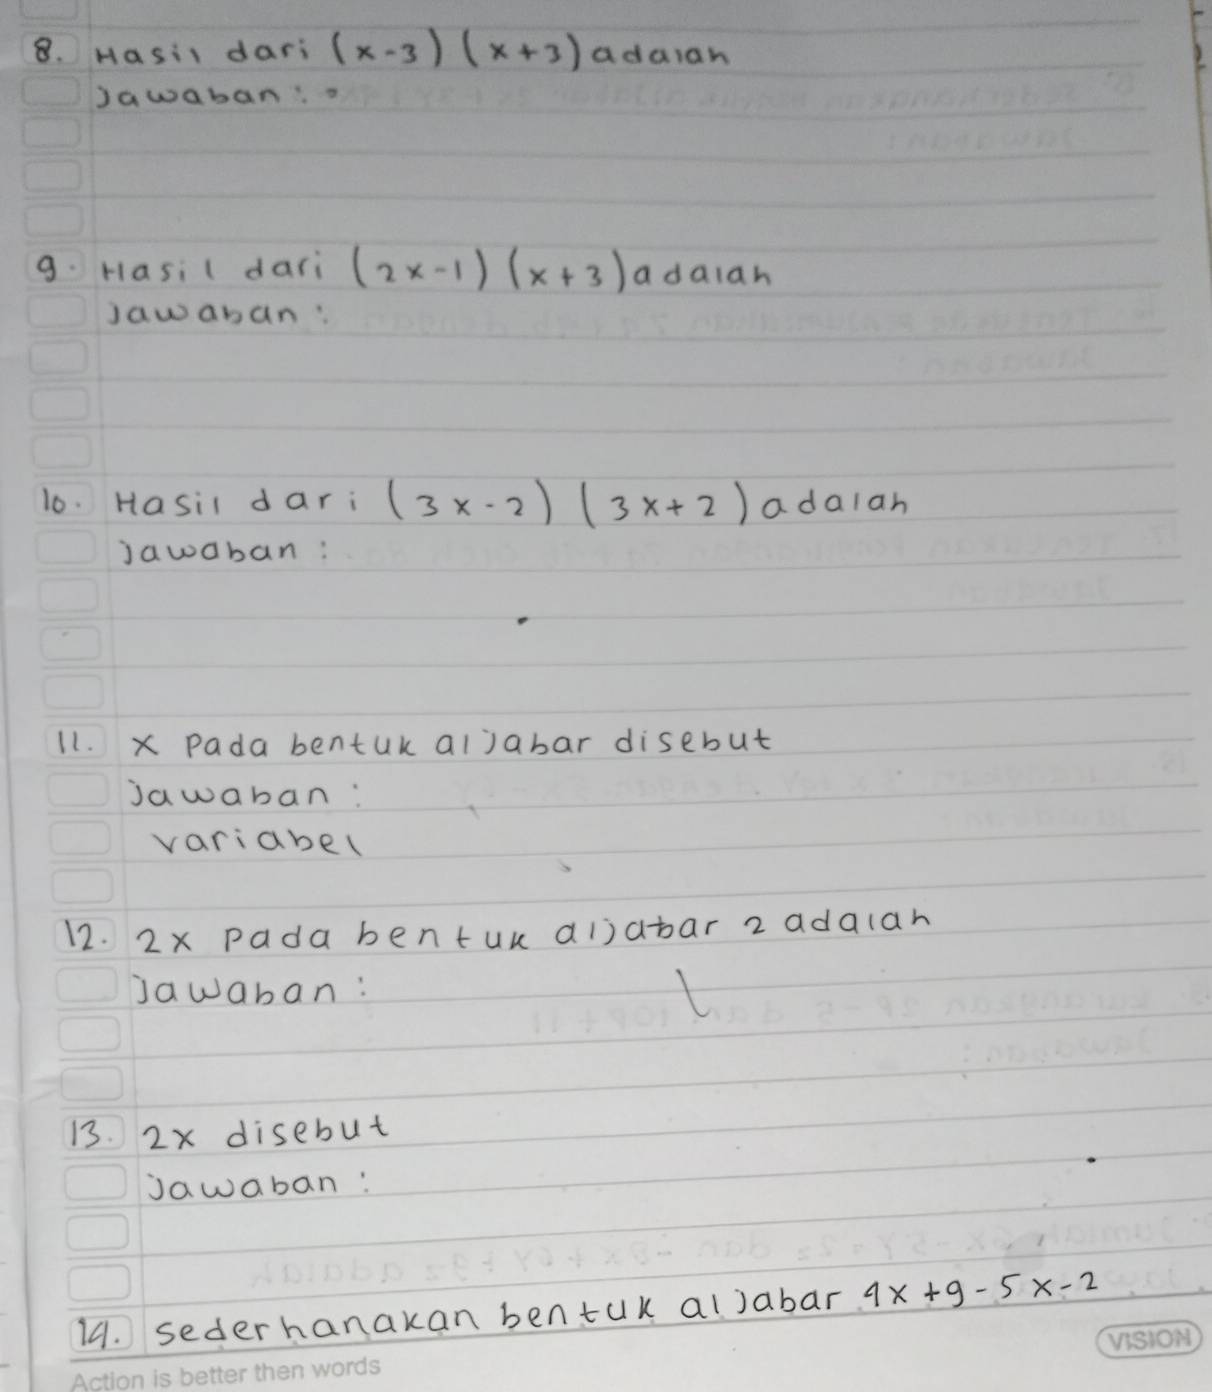 8. Hasil dari (x-3) (x+3) adalah
Jawaban:
9. Hasil dari (2x-1) (x+3) adalah
Jawaban:
10. Hasil dari (3x-2) (3x+2) adalah
Jawaban:
11. x Pada bentuk aljabar disebut
Jawaban:
variabel
12. 2x Pada bentuk aljabar 2 adalah
Jawaban:
13. 2x disebut
Jawaban:
14. sederhanakan bentuk aljabar 4x+9-5x-2
VISION
Action is better then words